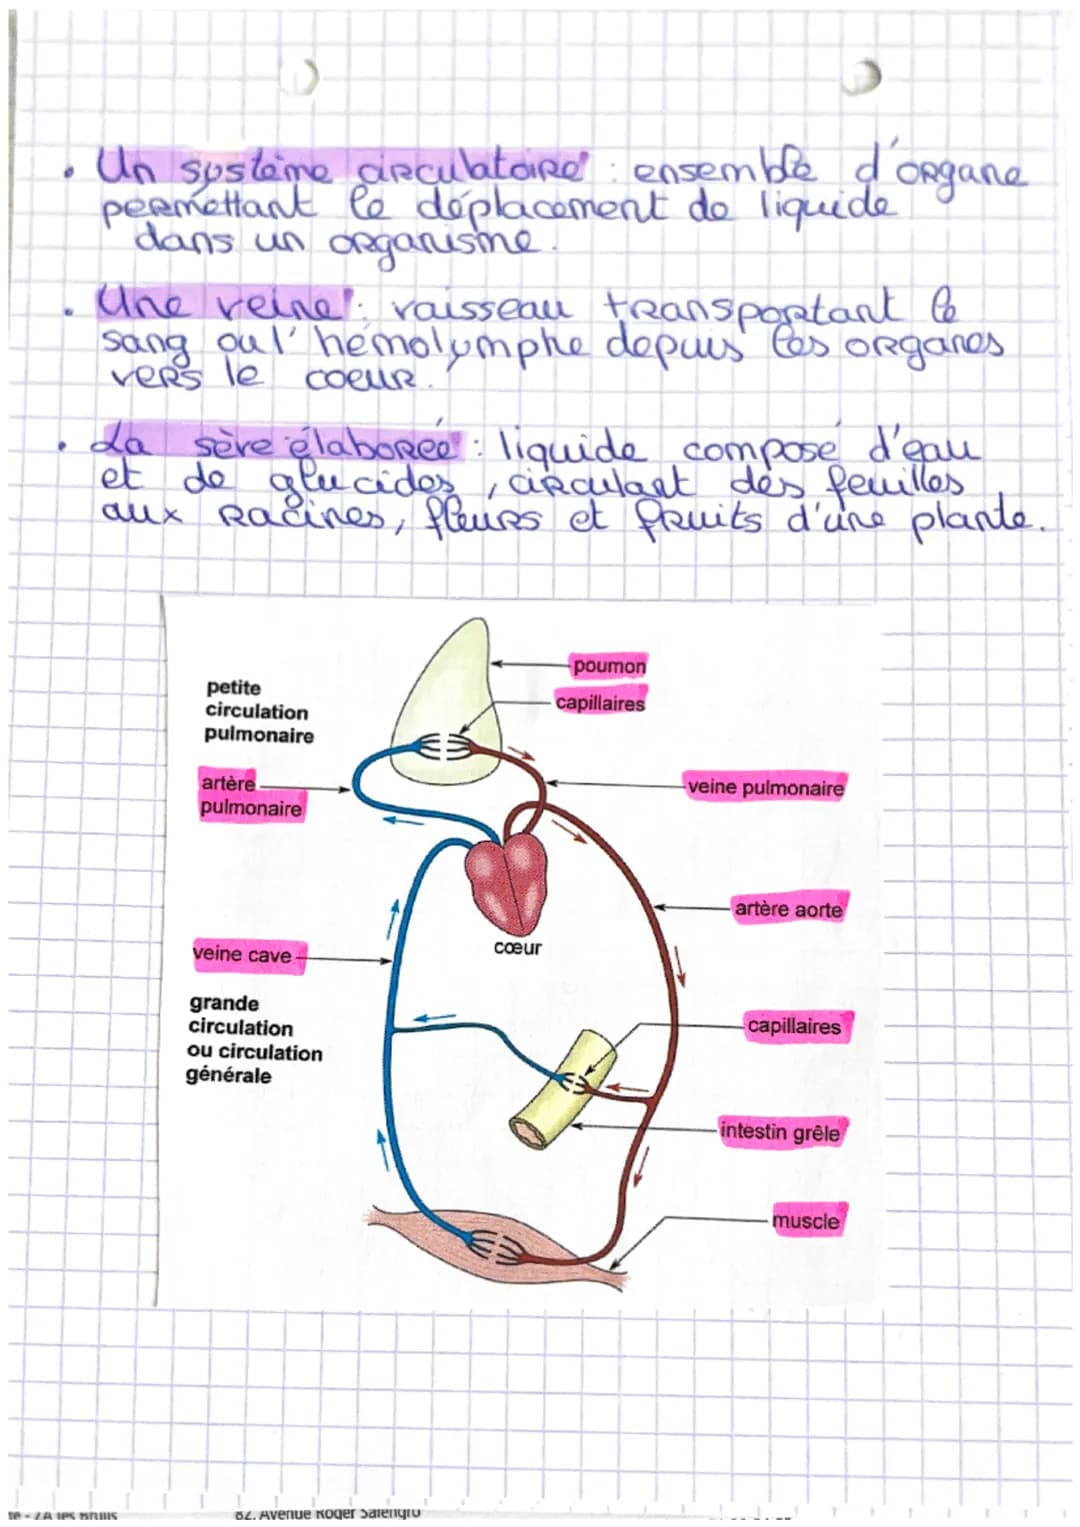 • Un système circulatoire : ensemble d'organe
permettant le déplacement de liquide
dans un organisme.
• Une veine : vaisseau transportant le
sang ou l'hémolymphe depuis les organes
vers le coeur.
• La sève élaborée : liquide composé d'eau
et de glucides, circulant des feuilles
aux racines, fleurs et fruits d'une plante.
poumon
capillaires
petite
circulation
pulmonaire
artère
pulmonaire
veine pulmonaire
artère aorte
cœur
veine cave
grande
circulation
ou circulation
générale
capillaires
intestin grêle
muscle
82, Avenue Roger Salengro